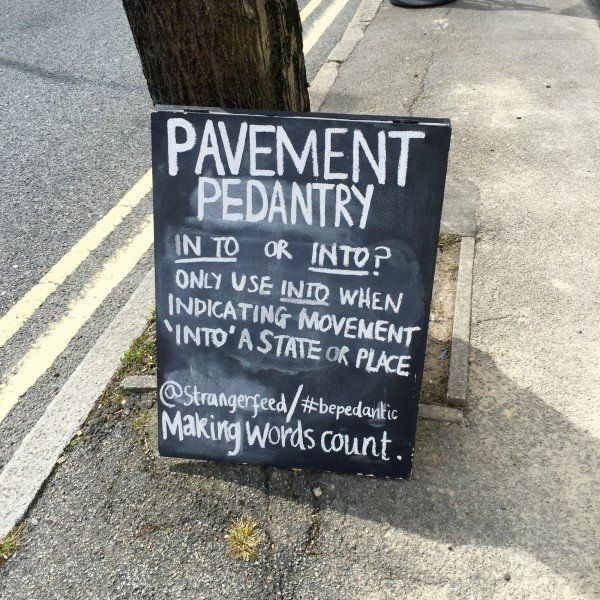 PAVEMENT
PEDANTRY
IN TO OR INTO?
ONLY USE INTO WHEN
INDICATING MOVEMENT
'INTO' A STATE OR PLACE
@strangerfeed/#bepedantic
Making words count.